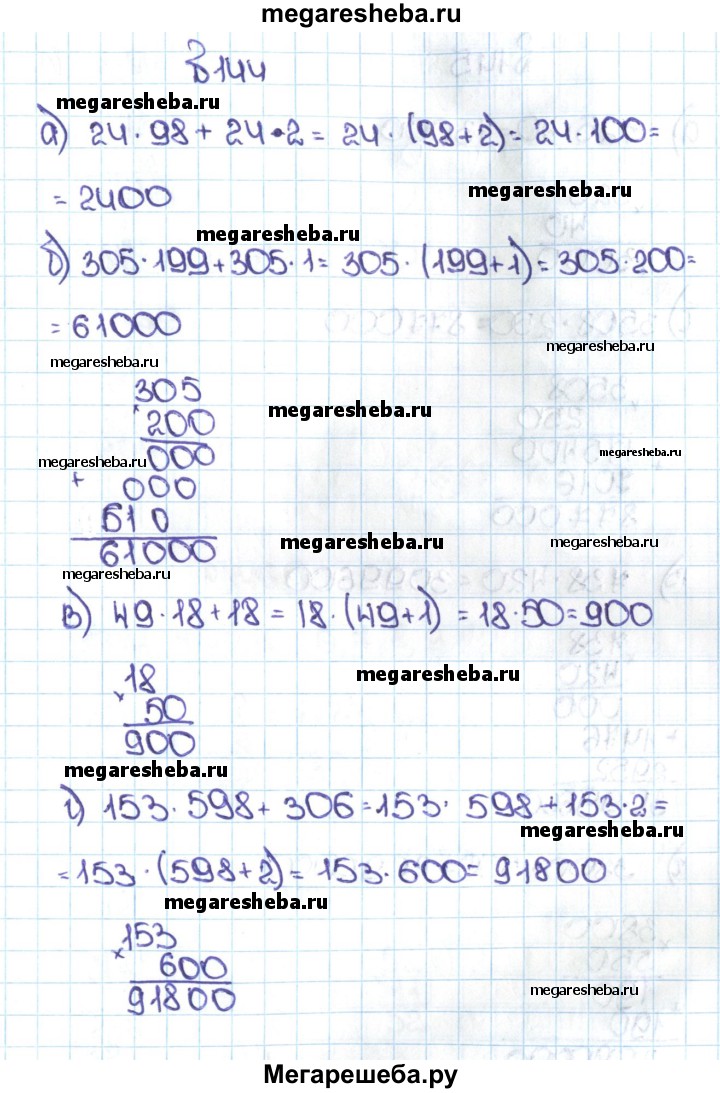 megaresheba.ru
В 144
megaresheba.ru
а) 24 · 98 + 24 · 2 = 24 · (98+2) = 24 · 100 =
= 2400
megaresheba.ru
megaresheba.ru
б) 305 · 199 + 305 · 1 = 305 · (199+1) = 305 · 200 =
= 61000
megaresheba.ru
megaresheba.ru
305
megaresheba.ru
× 200
megaresheba.ru
000
megaresheba.ru
+ 000
610
megaresheba.ru
61000
megaresheba.ru
megaresheba.ru
в) 49 · 18 + 18 = 18 · (49+1) = 18 · 50 = 900
megaresheba.ru
18
× 50
900
megaresheba.ru
г) 153 · 598 + 306 = 153 · 598 + 153 · 2 =
megaresheba.ru
= 153 · (598+2) = 153 · 600 = 91800
megaresheba.ru
153
× 600
91800
megaresheba.ru
Мегарешеба.ру